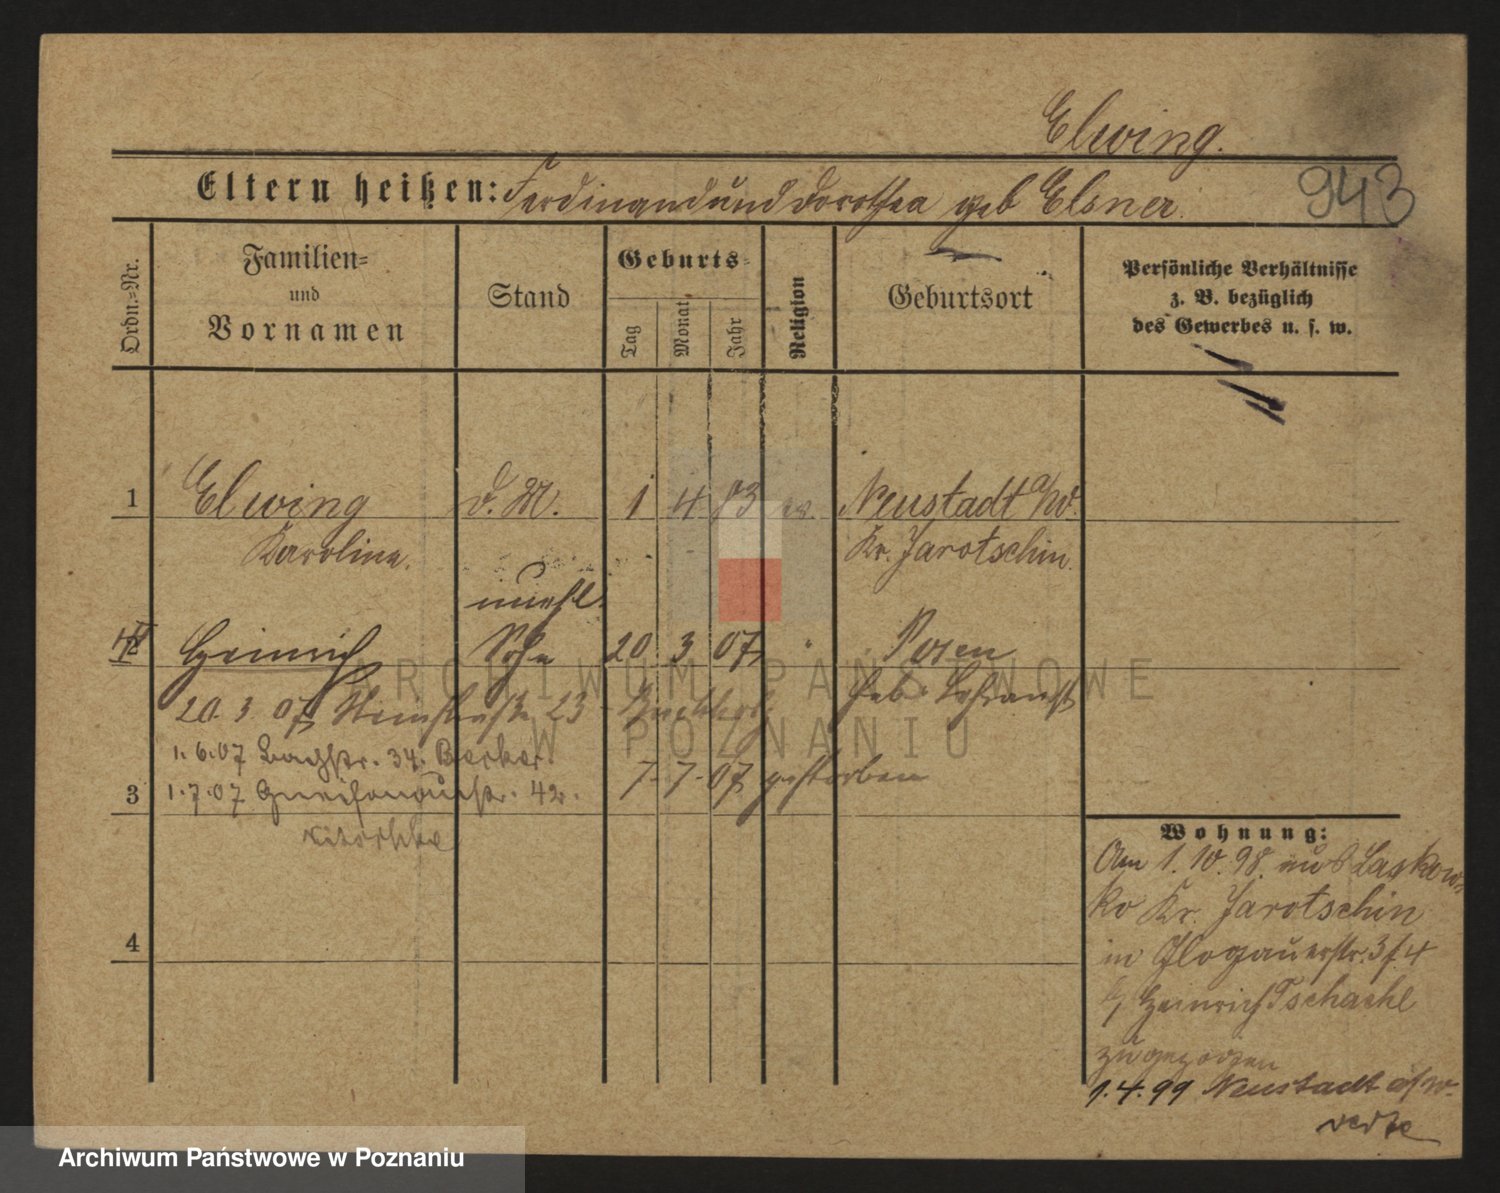 Elwing.
943
Eltern heißen: Ferdinand und Dorothea geb Elsner.
Ordn.=Nr.
Familien=
und
Vornamen
Stand
Geburts=
Tag
Monat
Jahr
Religion
Geburtsort
Persönliche Verhältnisse
z. B. bezüglich
des Gewerbes u. s. w.
1 Elwing d. M. 1 4 73 ev. Neustadt a/W.
Karoline. Kr. Jarotschin.
unehl.
2 Heinrich Sohn 20 3 07 " Posen
20. 3. 07 23 Heb.
1.6.07 Bachstr. 34. Becker.
7.7.07 gestorben
3 1.7.07 Gneisenaustr. 42.
4
Wohnung:
Am 1. 10. 98. aus Laskow
ko Kr. Jarotschin
in Glogauerstr. 3/4
b/ Heinrich Tschackl
zugezogen
1.4.99 Neustadt a/W.
verte
ARCHIWUM PAŃSTWOWE
W POZNANIU
Archiwum Państwowe w Poznaniu